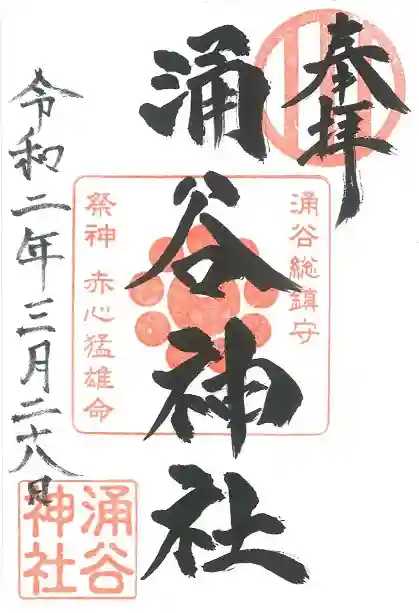 奉拝
涌谷総鎮守
涌谷神社
祭神 赤心猛雄命
令和二年三月二十八日
涌谷
神社